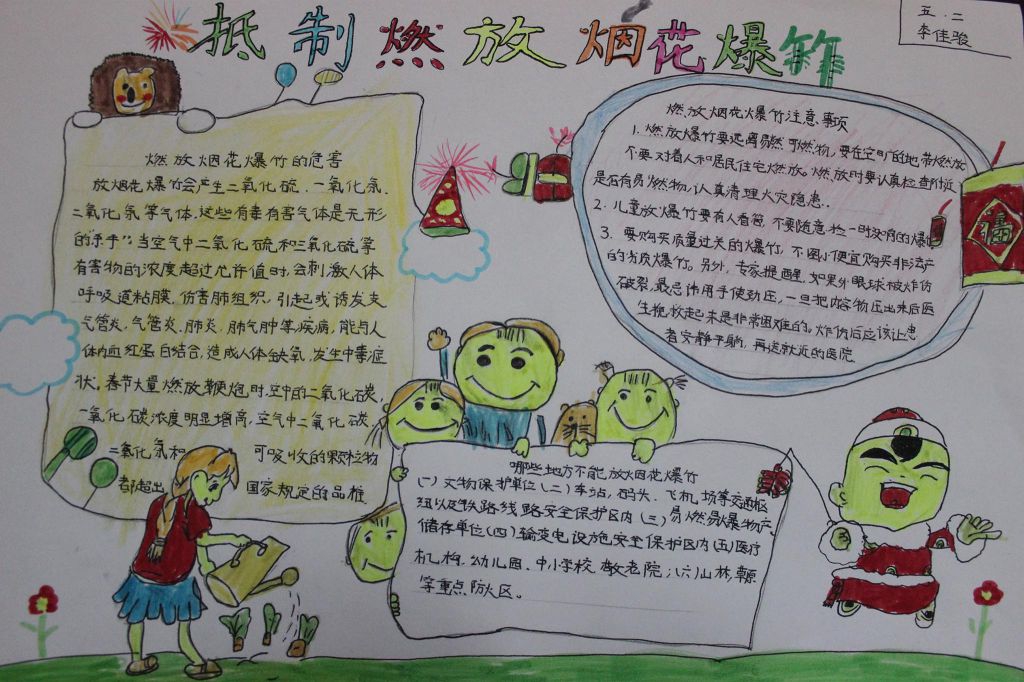 抵制燃放烟花爆竹
五.二
李佳骏
燃放烟花爆竹的危害
放烟花爆竹会产生二氧化硫、一氧化氮、
二氧化氮等气体,这些有毒有害气体是无形
的“杀手”;当空气中二氧化硫和三氧化硫等
有害物的浓度超过允许值时,会刺激人体
呼吸道粘膜,伤害肺组织,引起或诱发支
气管炎、气管炎、肺炎、肺气肿等疾病,能与人
体内血红蛋白结合,造成人体缺氧,发生中毒症
状。春节大量燃放鞭炮时,空中的二氧化碳,
一氧化碳浓度明显增高,空气中二氧化碳、
二氧化氮和 可吸收的颗粒物
都超出 国家规定的品
燃放烟花爆竹注意事项
1. 燃放爆竹要远离易燃可燃物,要在空旷的地带燃放
不要对着人和居民住宅燃放。燃放时要认真检查附近
是否有易燃物,认真清理火灾隐患..
2. 儿童放爆竹要有人看管,不要随意捡一时没响的爆竹
3. 要购买质量过关的爆竹,不图小便宜购买非法产
的劣质爆竹。另外,专家提醒,如果外眼球被炸伤
破裂,最忌讳用手使劲压,一旦把内容物压出来后医
生挽放起来是非常困难的。炸伤后应该让患
者安静平躺,再送就近的医院
福
哪些地方不能放烟花爆竹
(一)文物保护单位(二)车站,码头、飞机场等交通枢
纽以及铁路线路安全保护区内(三)易燃易爆物产
储存单位(四)输变电设施安全保护区内(五)医疗
机构、幼儿园、中小学校、敬老院;(六)山林,
等重点防火区。